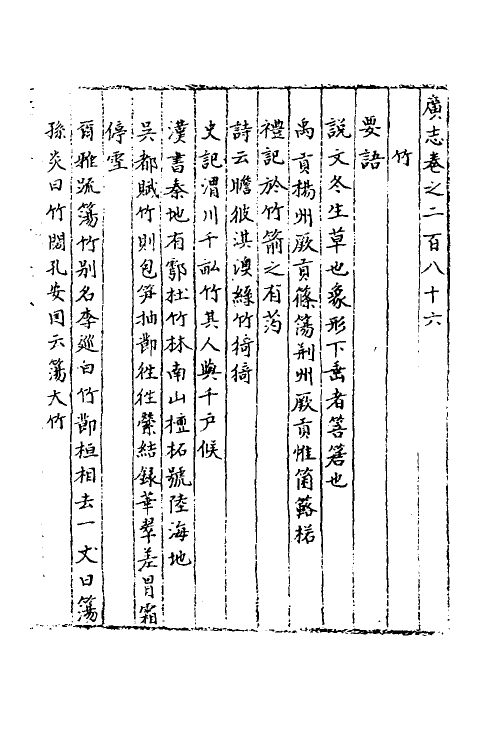 廣志卷之二百八十六
竹
要語
說文冬生草也象形下垂者箁箬也
禹貢揚州厥貢篠簜荆州厥貢惟箘簵楛
禮記於竹箭之有筠
詩云瞻彼淇澳綠竹猗猗
史記渭川千畝竹其人與千戸候
漢書秦地有鄠杜竹林南山檀柘號陸海地
吳都賦竹則包笋抽節徃徃縈結録華翠差冒霜
停雪
爾雅疏簜竹别名李廵曰竹節栢相去一丈曰簜
孫炎曰竹闊孔安囯云簜大竹